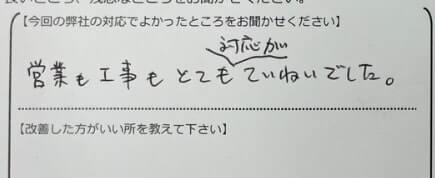 【今回の弊社の対応でよかったところをお聞かせください】
対応が
営業も工事もとてもていねいでした。
【改善した方がいい所を教えて下さい】